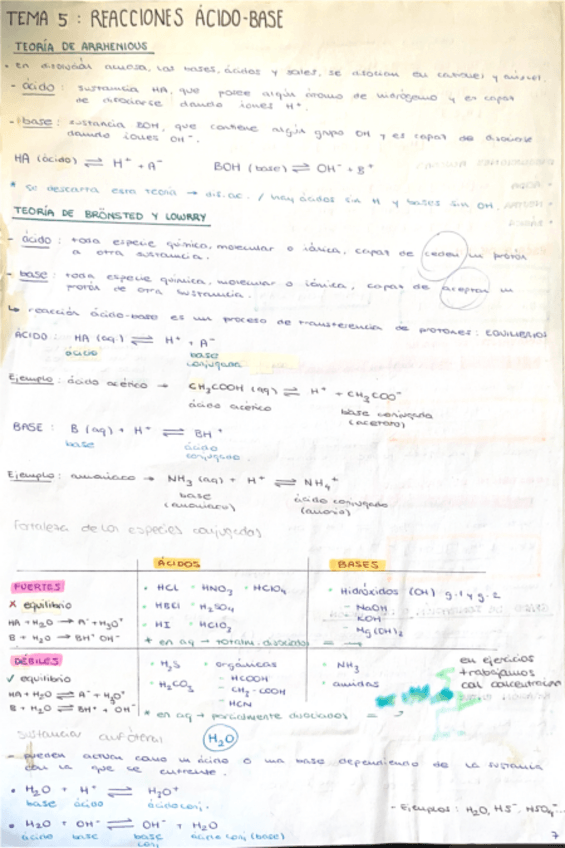 TEMA 5 : REACCIONES ÁCIDO-BASE
TEORÍA DE ARRHENIOUS
• en disolución acuosa, las bases, ácidos y sales, se disocian en cationes y aniones.
- ácido : sustancia HA, que posee algún átomo de hidrógeno y es capaz
de disociarse dando iones H⁺.
- base : sustancia BOH, que contiene algún grupo OH y es capaz de disociarse
dando iones OH⁻.
HA (ácido) ⇌ H⁺ + A⁻ BOH (base) ⇌ OH⁻ + B⁺
* se descarta esta teoría → dis. ac. / hay ácidos sin H y bases sin OH.
TEORÍA DE BRÖNSTED Y LOWRRY
- ácido : toda especie química, molecular o iónica, capaz de ceder un protón
a otra sustancia.
- base : toda especie química, molecular o iónica, capaz de aceptar un
protón de otra sustancia.
↳ reacción ácido-base es un proceso de transferencia de protones : EQUILIBRIOS
ÁCIDO : HA (aq.) ⇌ H⁺ + A⁻
ácido base
conjugada
Ejemplo : ácido acético → CH₃COOH (aq) ⇌ H⁺ + CH₃COO⁻
ácido acético base conjugada
(acetato)
BASE : B (aq) + H⁺ ⇌ BH⁺
base ácido
conjugado
Ejemplo : amoniaco → NH₃ (aq) + H⁺ ⇌ NH₄⁺
base ácido conjugado
(amoniaco) (amonio)
Fortaleza de las especies conjugadas
ÁCIDOS BASES
FUERTES
✗ equilibrio
HA + H₂O → A⁻ + H₃O⁺
B + H₂O → BH⁺ OH⁻
• HCl • HNO₃ • HClO₄
• HBr • H₂SO₄
• HI • HClO₃
* en aq → totalm. disociados = →
• Hidróxidos (OH) g.1 y g.2
- NaOH
- KOH
- Mg(OH)₂
DÉBILES
✓ equilibrio
HA + H₂O ⇌ A⁻ + H₃O⁺
B + H₂O ⇌ BH⁺ + OH⁻
• H₂S • orgánicas
• H₂CO₃ - HCOOH
- CH₃-COOH
HCN
* en aq → parcialmente disociados =
• NH₃
• amidas
en ejercicios
trabajamos
con concentración
Sustancias anfóteras H₂O
- pueden actuar como un ácido o una base dependiendo de la sustancia
con la que se enfrente.
• H₂O + H⁺ ⇌ H₃O⁺
base ácido ácido conj.
- Ejemplos : H₂O, HS⁻, HSO₄⁻...
• H₂O + OH⁻ ⇌ OH⁻ + H₂O
ácido base base ácido conj (base)
conj
7